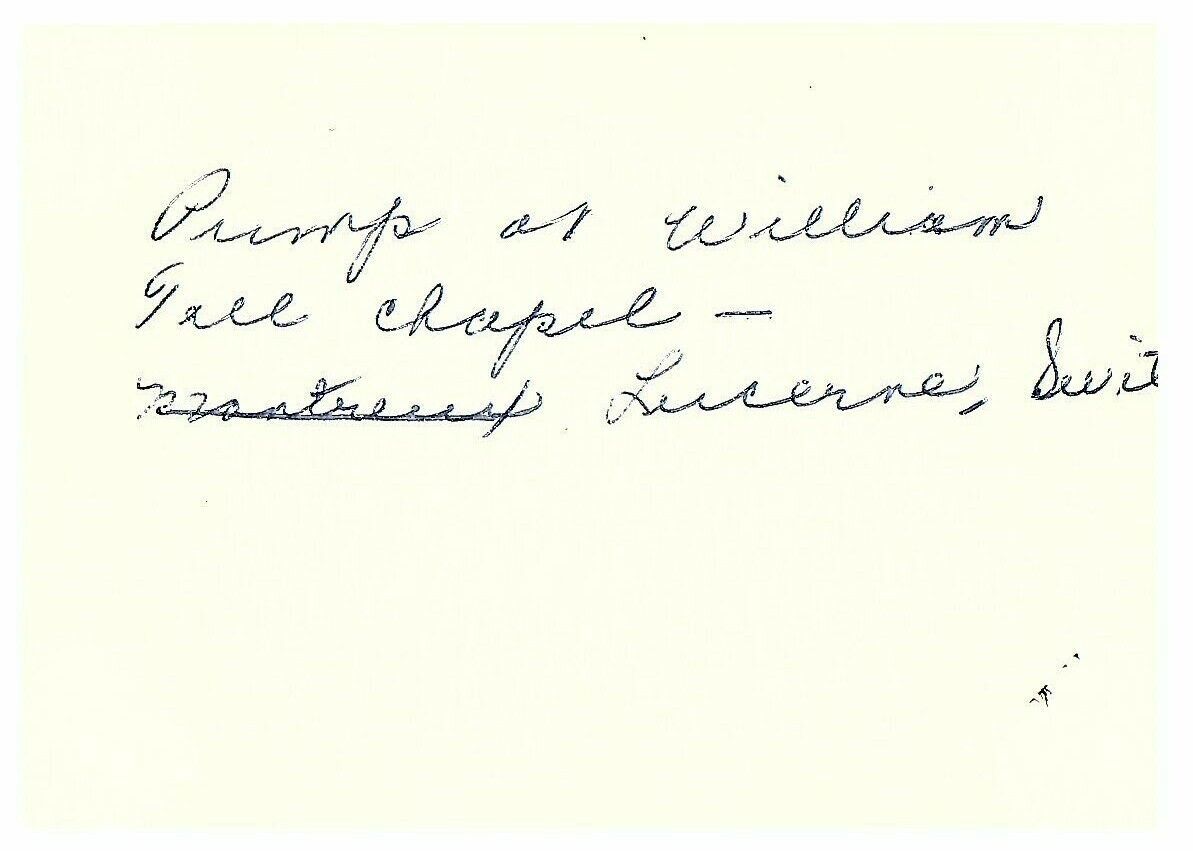 Pump at William
Tell chapel —
Montreux Lucerne, Swit